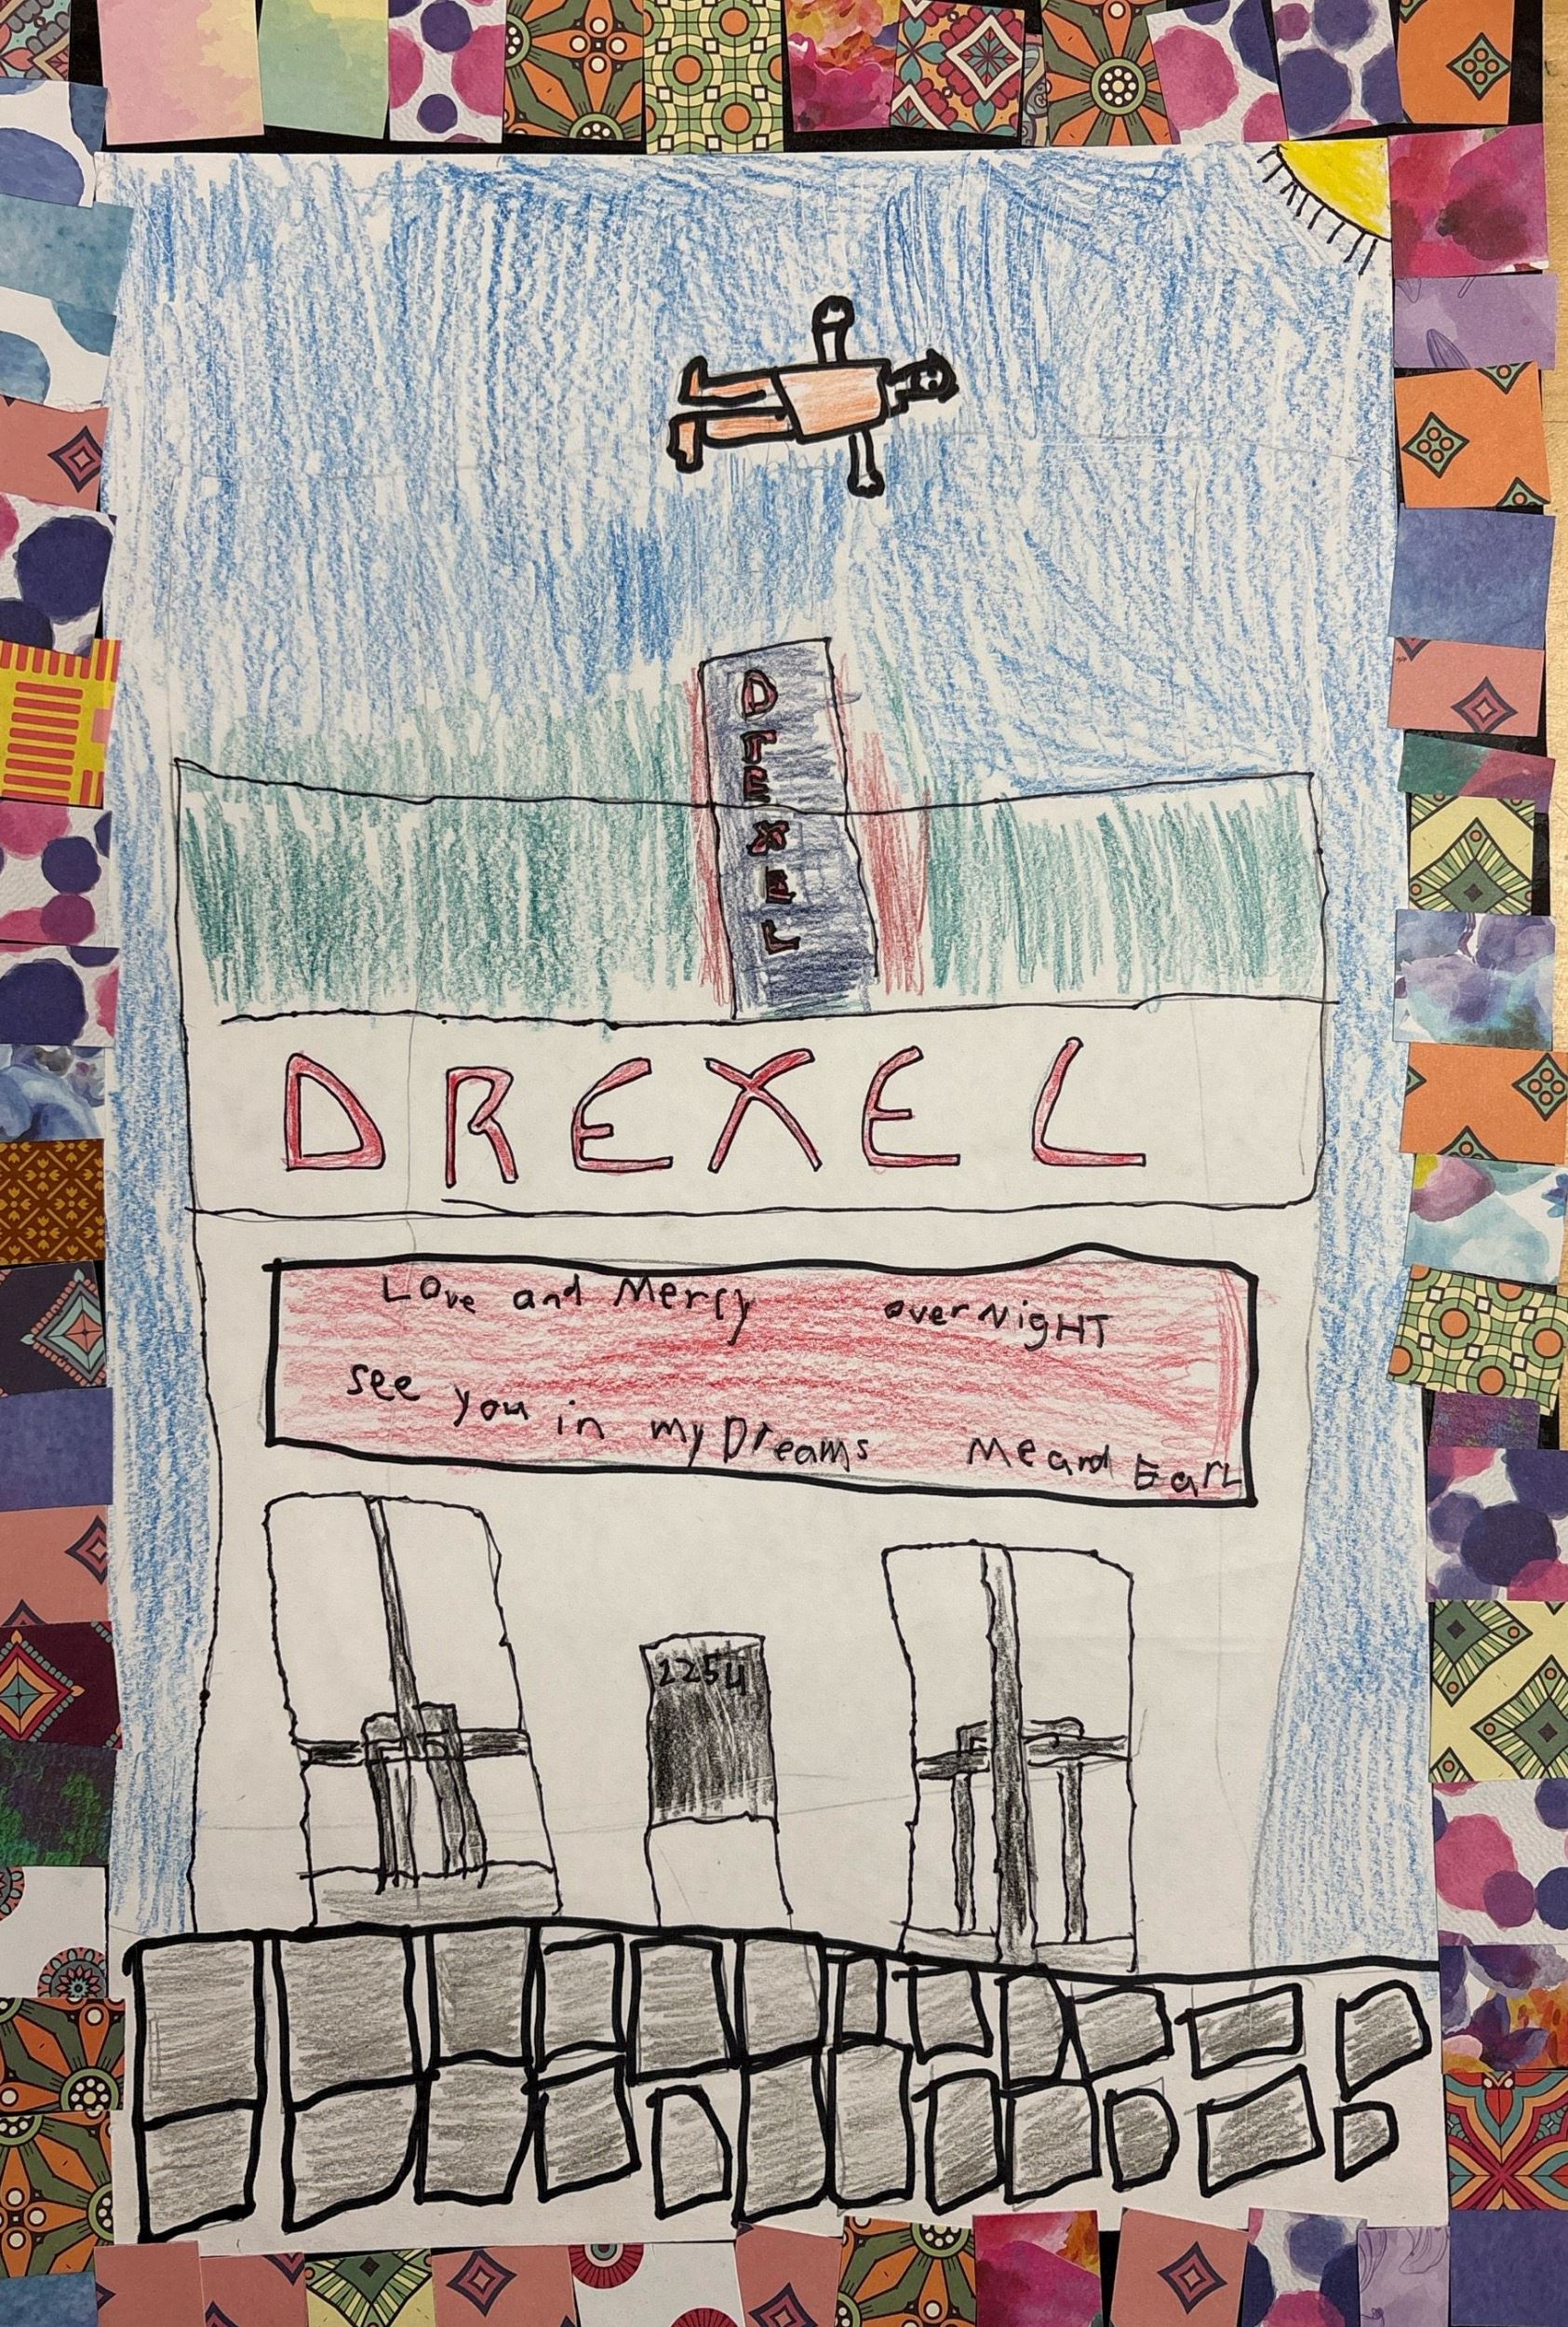 DrEXEL
DREXEL
Love and Mercy overNigHT
see you in my Dreams Me and EarL
2254